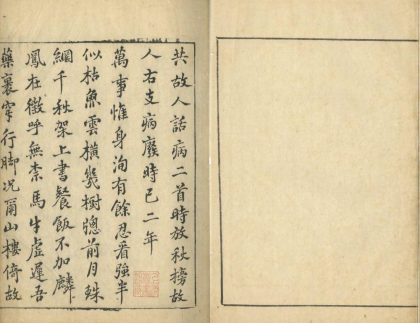 共故人話病二首時放秋榜故
人右支病廢時已二年
萬事惟身洵有餘忍看強半
似枯魚雲橫甃樹窻前月蛛
網千秋架上書餐飯不加麟
鳳在徵呼無柰馬牛虛遲吾
藥裹穿行脚况爾山樓倚故